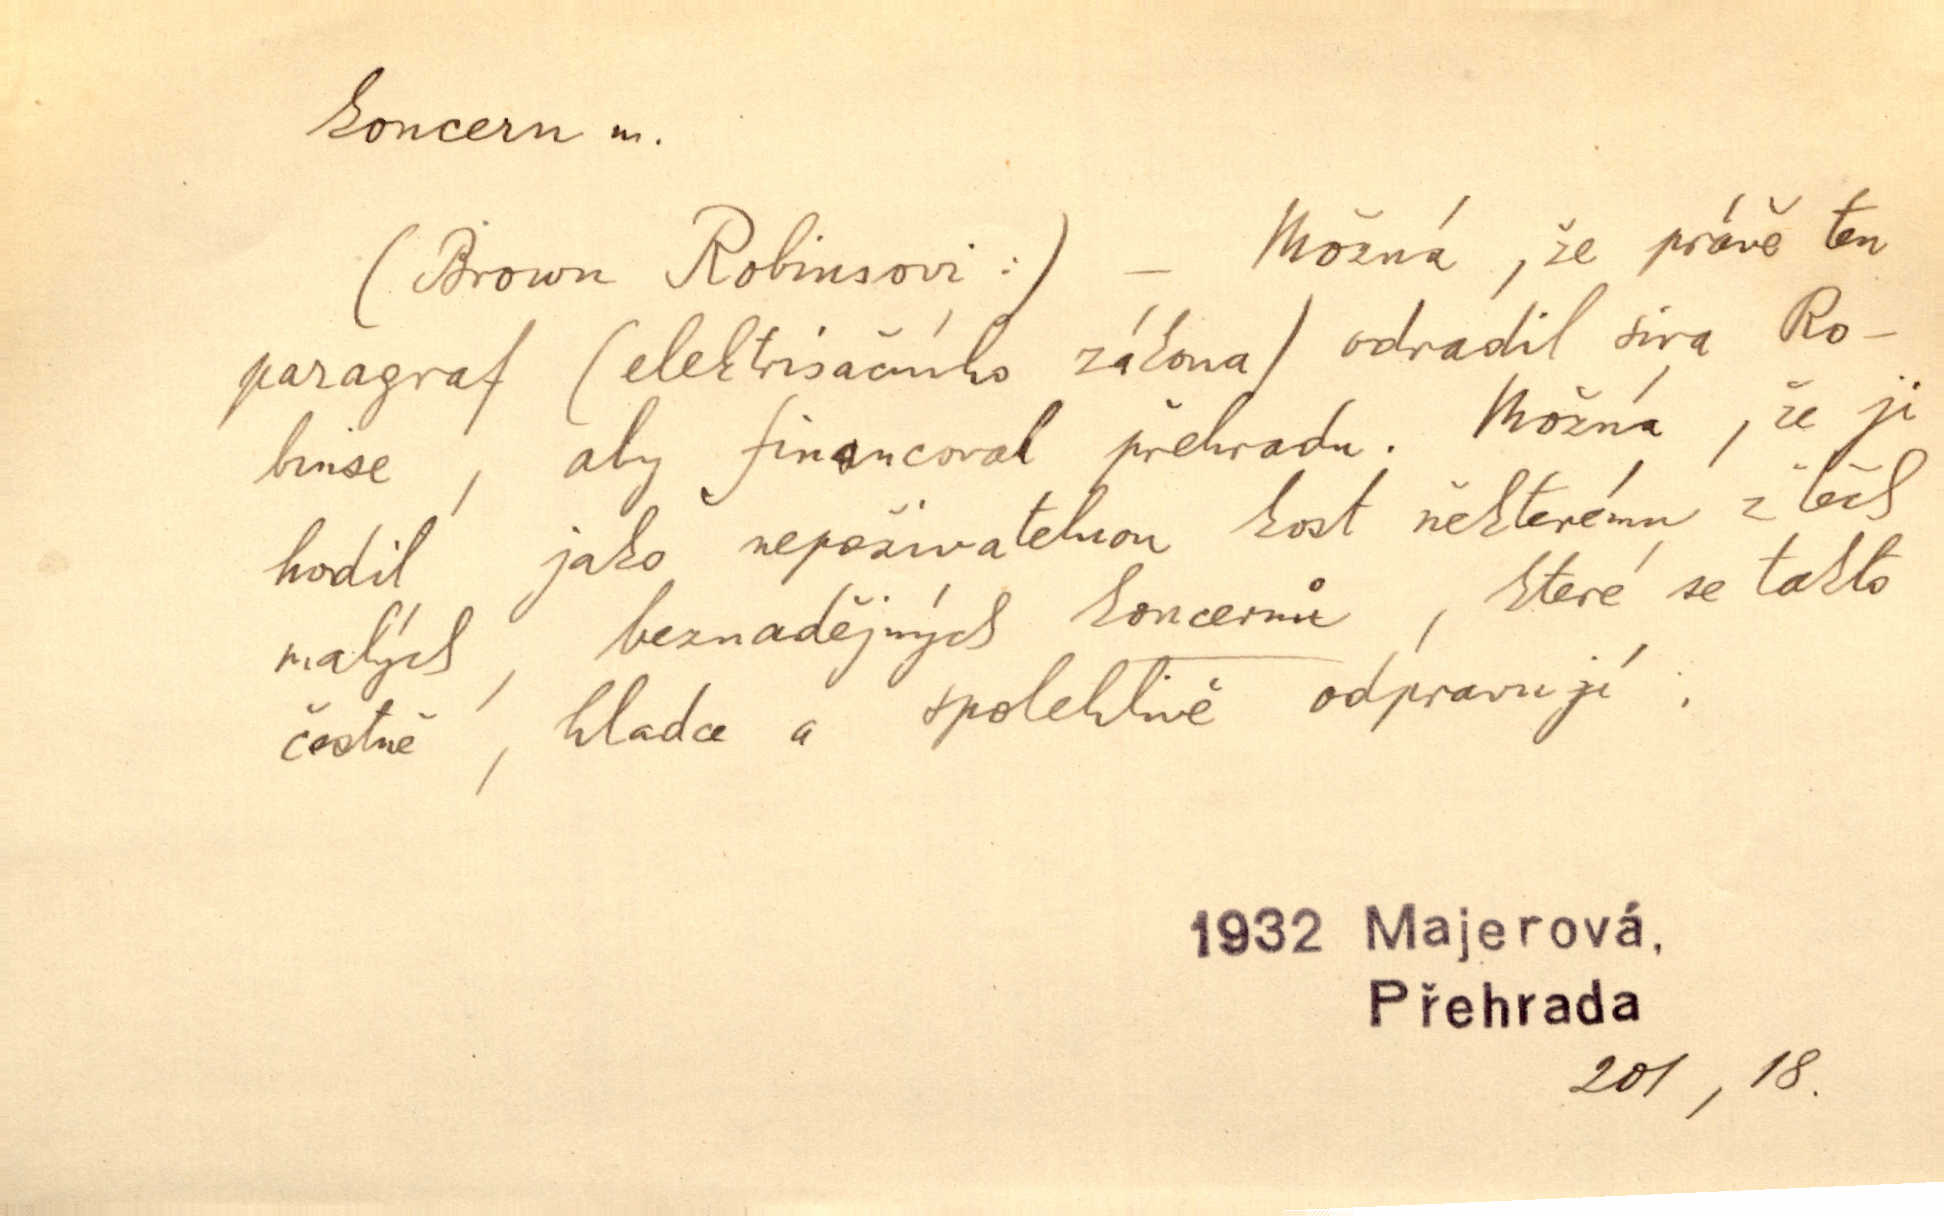 koncern m.
(Brown Robinsovi:) – Možná, že právě ten
paragraf (elektrisačního zákona) odradil sira Ro-
binse, aby financoval přehradu. Možná, že ji
hodil jako nepoživatelnou kost některému z těch
malých, beznadějných koncernů, které se takto
čestně, hladce a spolehlivě odpravují.
1932 Majerová,
Přehrada
201, 18.